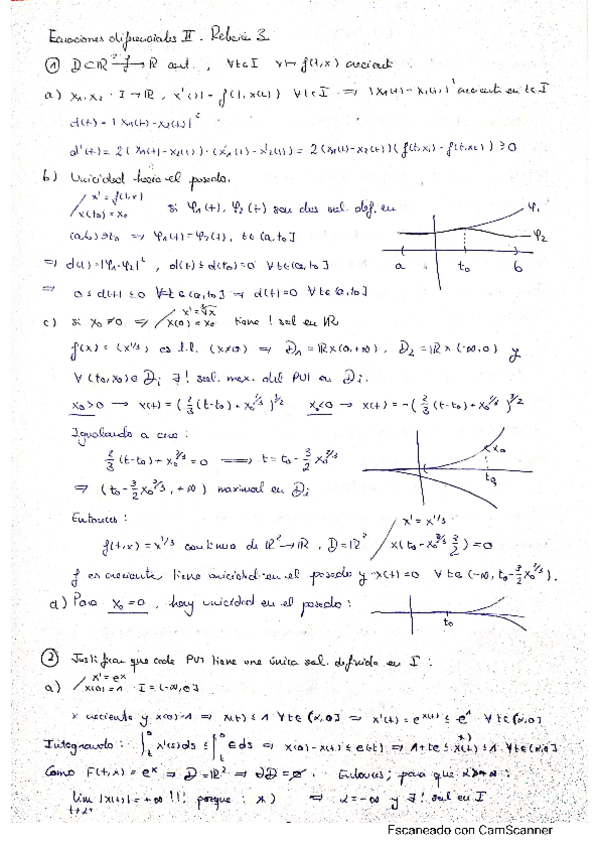 Ecuaciones diferenciales II. Relación 3
① D⊂R² →f R cont., ∀t∈I x↦f(t,x) creciente
a) x₁, x₂ : I→R, x'(t) = f(t, x(t)) ∀t∈I ⇒ |x₁(t)-x₂(t)|² creciente en t∈I
d(t) = |x₁(t)-x₂(t)|²
d'(t) = 2(x₁(t)-x₂(t))·(x'₁(t)-x'₂(t)) = 2(x₁(t)-x₂(t))(f(t,x₁)-f(t,x₂)) ≥ 0
b) Unicidad hacia el pasado.
x' = f(t,x)
x(t₀) = x₀
si φ₁(t), φ₂(t) son dos sol. def. en
(a,b)∋t₀ ⇒ φ₁(t) = φ₂(t), t∈(a,t₀]
φ₁
φ₂
a t₀ b
⇒ d(t) = |φ₁-φ₂|², d(t) ≤ d(t₀) = 0 ∀t∈(a,t₀]
⇒ 0 ≤ d(t) ≤ 0 ∀t∈(a,t₀] ⇒ d(t) = 0 ∀t∈(a,t₀]
c) si x₀≠0 ⇒ x' = ∛x
x(0) = x₀ tiene ! sol en R
f(x) = (x^{1/3}) es l.l. (x≠0) ⇒ D₁ = R×(0,+∞), D₂ = R×(-∞,0) y
∀(t₀,x₀)∈Dᵢ ∃! sol. max. del PVI en Dᵢ.
x₀>0 → x(t) = (2/3 (t-t₀) + x₀^{2/3})^{3/2} x₀<0 → x(t) = -(2/3 (t-t₀) + x₀^{2/3})^{3/2}
Igualando a cero:
2/3 (t-t₀) + x₀^{2/3} = 0 ⟹ t = t₀ - 3/2 x₀^{2/3}
x₀
t₀
⇒ (t₀ - 3/2 x₀^{2/3}, +∞) maximal en Dᵢ
Entonces:
x' = x^{1/3}
f(t,x) = x^{1/3} continua de R²→R, D = R² x(t₀ - x₀^{2/3} 3/2) = 0
f es creciente, tiene unicidad en el pasado y x(t) = 0 ∀t∈(-∞, t₀ - 3/2 x₀^{2/3}).
d) Para x₀ = 0, hay unicidad en el pasado:
t₀
② Justificar que cada PVI tiene una única sol. definida en I:
a) x' = eˣ
x(0) = 1 I = (-∞, 0]
x creciente y x(0) = 1 ⇒ x(t) ≤ 1 ∀t∈(α,0] ⇒ x'(t) = e^{x(t)} ≤ e¹ ∀t∈(α,0]
Integrando: ∫ₜ⁰ x'(s)ds ≤ ∫ₜ⁰ e ds ⇒ x(0)-x(t) ≤ e(-t) ⇒ 1+te ≤ x(t) ≤ 1 ∀t∈(α,0]
Como F(t,x) = eˣ ⇒ D = R² ⇒ ∂D = ∅. Entonces, para que α>-∞:
lim |x(t)| = +∞ !!! porque: *) ⇒ α = -∞ y ∃! sol en I
t→α⁺
Escaneado con CamScanner